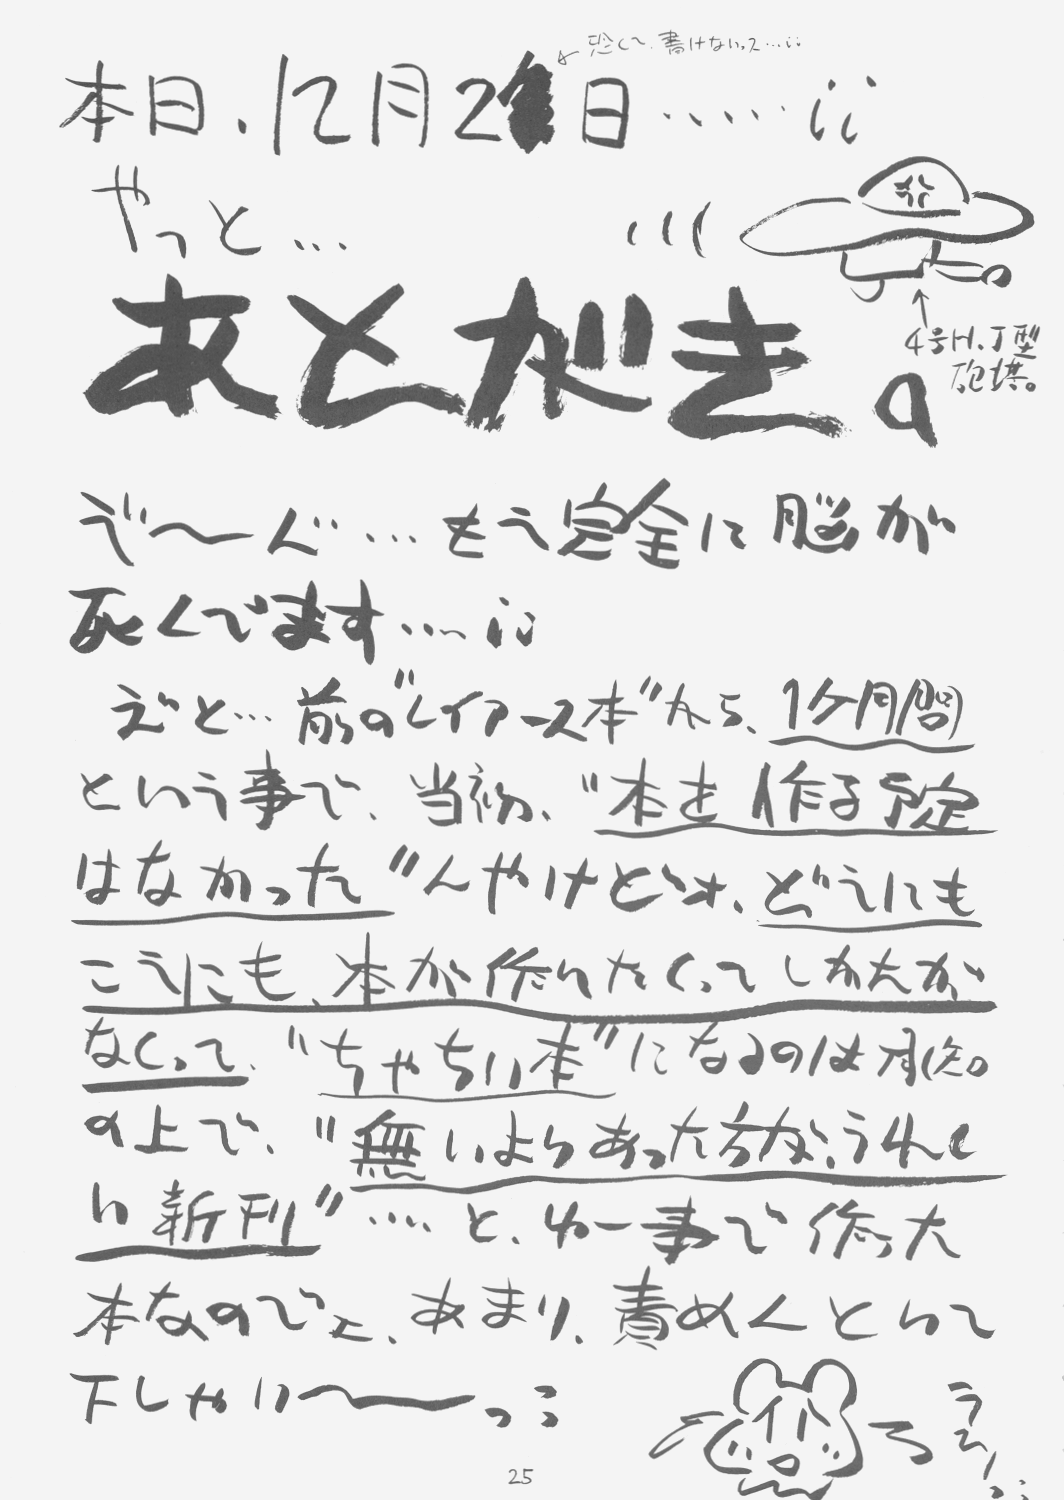 恐くて、書けないっス…;;
本日、12月2 日……;;
やっと…
あとがき。
4号H、J型
砲塔。
で〜ん…もう完全に脳が
死んでます…;;
えと…前の"レイアース本"から、1ケ月間
という事で、当初、"本を作る予定
はなかった"んやけどォ、どうにも
こうにも、本が作りたくってしかたが
なくって、"ちゃちい本"になるのは承知。
の上で、"無いよりあった方が、うれし
い新刊"…と、ゆー事で作った
本なのでェ、あまり、責めんといて
下しゃい〜〜っ;
25